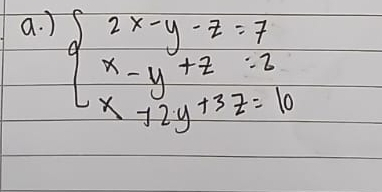 a.) { 2x - y - z = 7
x - y + z = 2
x + 2y + 3z = 10